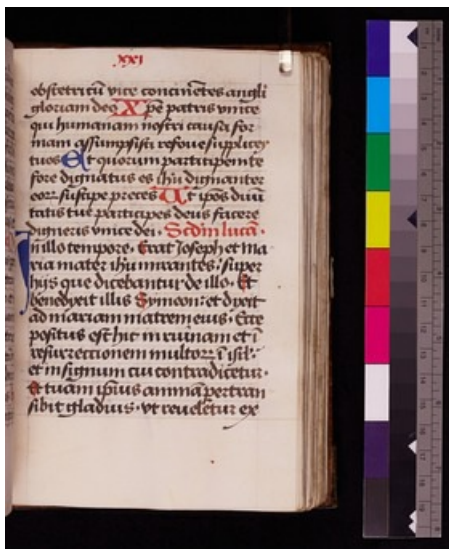 xxi
obstetricū vice concinētes angli
gloriam deo Xpe patris vnice
qui humanam nostri causa for
mam assumpsisti refoue supplices
tuos Et quorum participem te
fore dignatus es ihu dignanter
eorꝝ suscipe preces Ut ipōs diui
tatis tue participes deus facere
digneris vnice dei. Scdm lucā.
In illo tempore. Erat Joseph et ma
ria mater ihu mirantes. super
hijs que dicebantur de illo. Et
benedixit illis Symeon: et dixit
ad mariam matrem eius. Ecce
positus est hic in ruinam et ī
resurreccionem multorꝝ ī isrl.
et in signum cui contradicetur.
Et tuam ipsius animā pertran
sibit gladius. vt reueletur ex